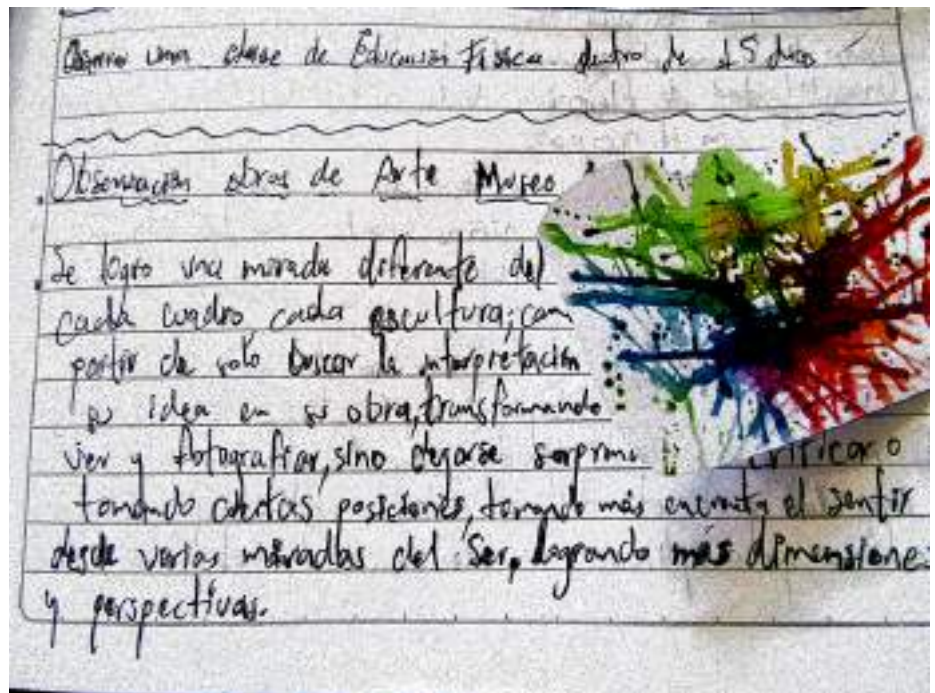 Observar una clase de Educación Física dentro de 15 dias
Observación obras de Arte Museo
Se logro una mirada diferente del
cada cuadro, cada escultura; com
partir de solo buscar la interpretación
su idea en su obra, transformando
ver y fotografiar, sino dejarse sorprend criticar o
tomando ciertas posiciones, tomando más encuenta el sentir
desde varias miradas del Ser, logrando más dimensione
y perspectivas.